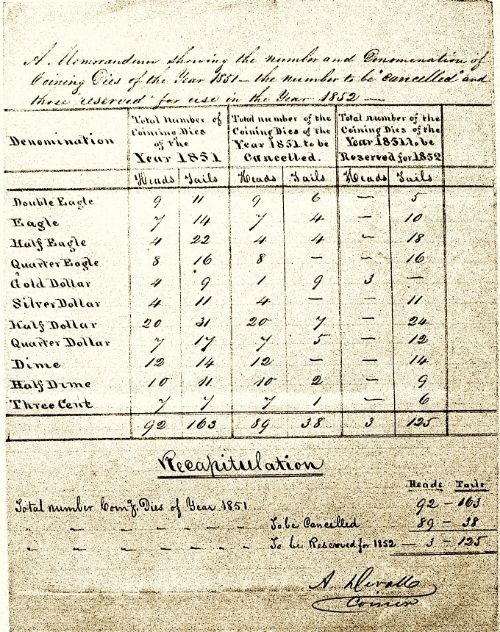 A. Memorandum showing the number and Denomenation of
Coining Dies of the Year 1851 — the number to be "cancelled" and
those "reserved" for use in the Year 1852 —
Denomination
Total Number of Coining Dies of the Year 1851
Total number of the Coining Dies of the Year 1851 to be Cancelled.
Total number of the Coining Dies of the Year 1851 to be Reserved for 1852
Heads Tails Heads Tails Heads Tails
Double Eagle 9 11 9 6 — 5
Eagle 7 14 7 4 — 10
Half Eagle 4 22 4 4 — 18
Quarter Eagle 8 16 8 — — 16
Gold Dollar 4 9 1 9 3 —
Silver Dollar 4 11 4 — — 11
Half Dollar 20 31 20 7 — 24
Quarter Dollar 7 17 7 5 — 12
Dime 12 14 12 — — 14
Half Dime 10 11 10 2 — 9
Three Cent 7 7 7 1 — 6
92 163 89 38 3 125
Recapitulation
Heads Tails
Total number Coing. Dies of Year 1851 92 - 163
" " " " " " To be Cancelled 89 - 38
" " " " " " To be Reserved for 1852 — 3 - 125
Coiner